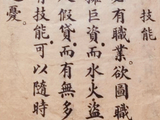 技能
有職業。欲圖職
擁巨資。而水火盜
假貸。而有無多
有技能。可以隨時
憂。